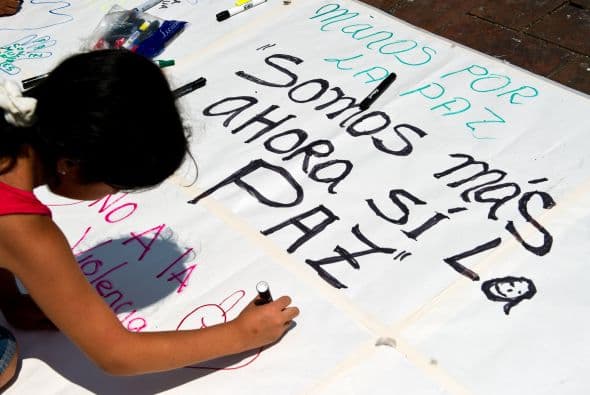 Manos por
la Paz
"Somos más
ahora sí La
Paz"
No a la
Violencia